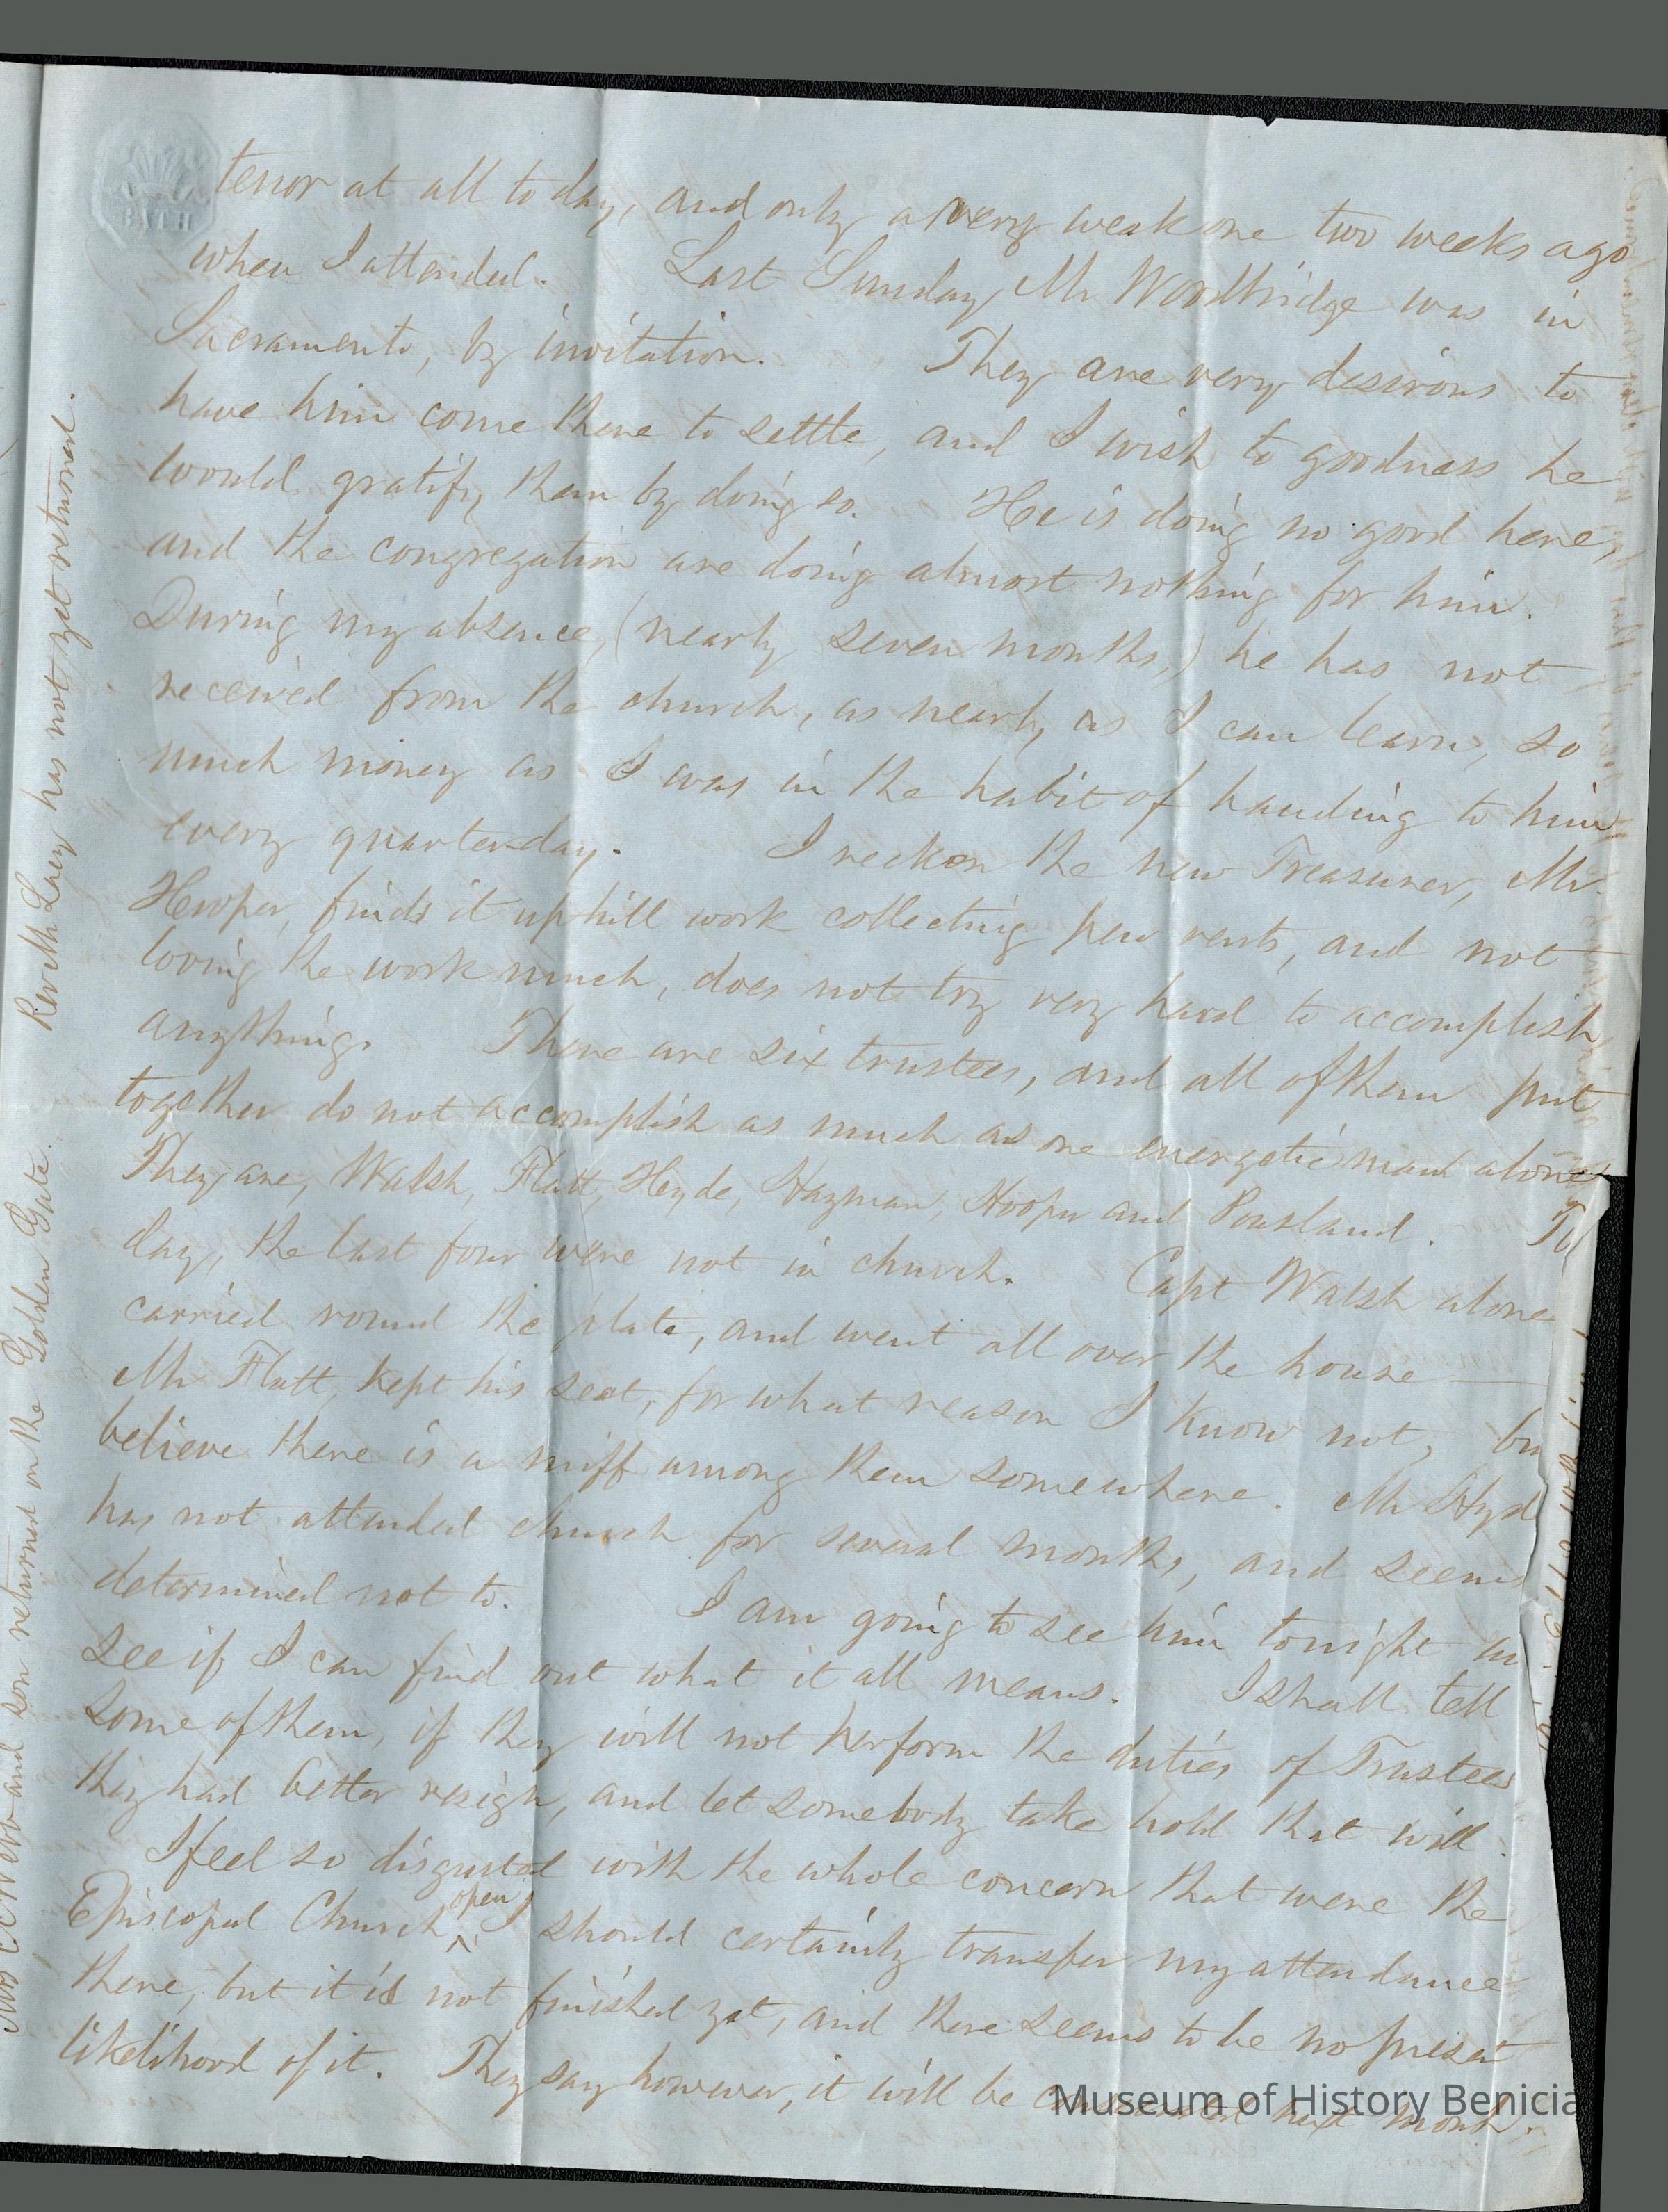 BATH
tenor at all to day, and only a very weak one two weeks ago
when I attended. Last Sunday Mr Woodbridge was in
Sacramento, by invitation. They are very desirous to
have him come there to settle, and I wish to goodness he
would gratify them by doing so. He is doing no good here,
and the congregation are doing almost nothing for him.
During my absence, (nearly seven months,) he has not
received from the church, as nearly as I can learn, so
much money as I was in the habit of handing to him
every quarter-day. I reckon the new Treasurer, Mr.
Hooper, finds it uphill work collecting pew rents, and not
loving the work much, does not try very hard to accomplish
anything. There are six trustees, and all of them put
together do not accomplish as much as one energetic man alone
They are, Walsh, Flatt, Heyde, Hayman, Hooper and Pousland. To
day, the last four were not in church. Capt Walsh alone
carried round the plate, and went all over the house —
Mr Flatt, kept his seat, for what reason I know not, bu
believe there is a miff among them somewhere. Mr Hyd
has not attended church for several months, and seems
determined not to. I am going to see him tonight an
see if I can find out what it all means. I shall tell
some of them, if they will not perform the duties of Trustees
they had better resign, and let somebody take hold that will.
I feel so disgusted with the whole concern that were the
Episcopal Church ^open I should certainly transfer my attendance
there, but it is not finished yet, and there seems to be no present
likelihood of it. They say however, it will be next month.
and son returned on the Golden Gate. Revd Mr Lacy has not yet returned.
Museum of History Benicia